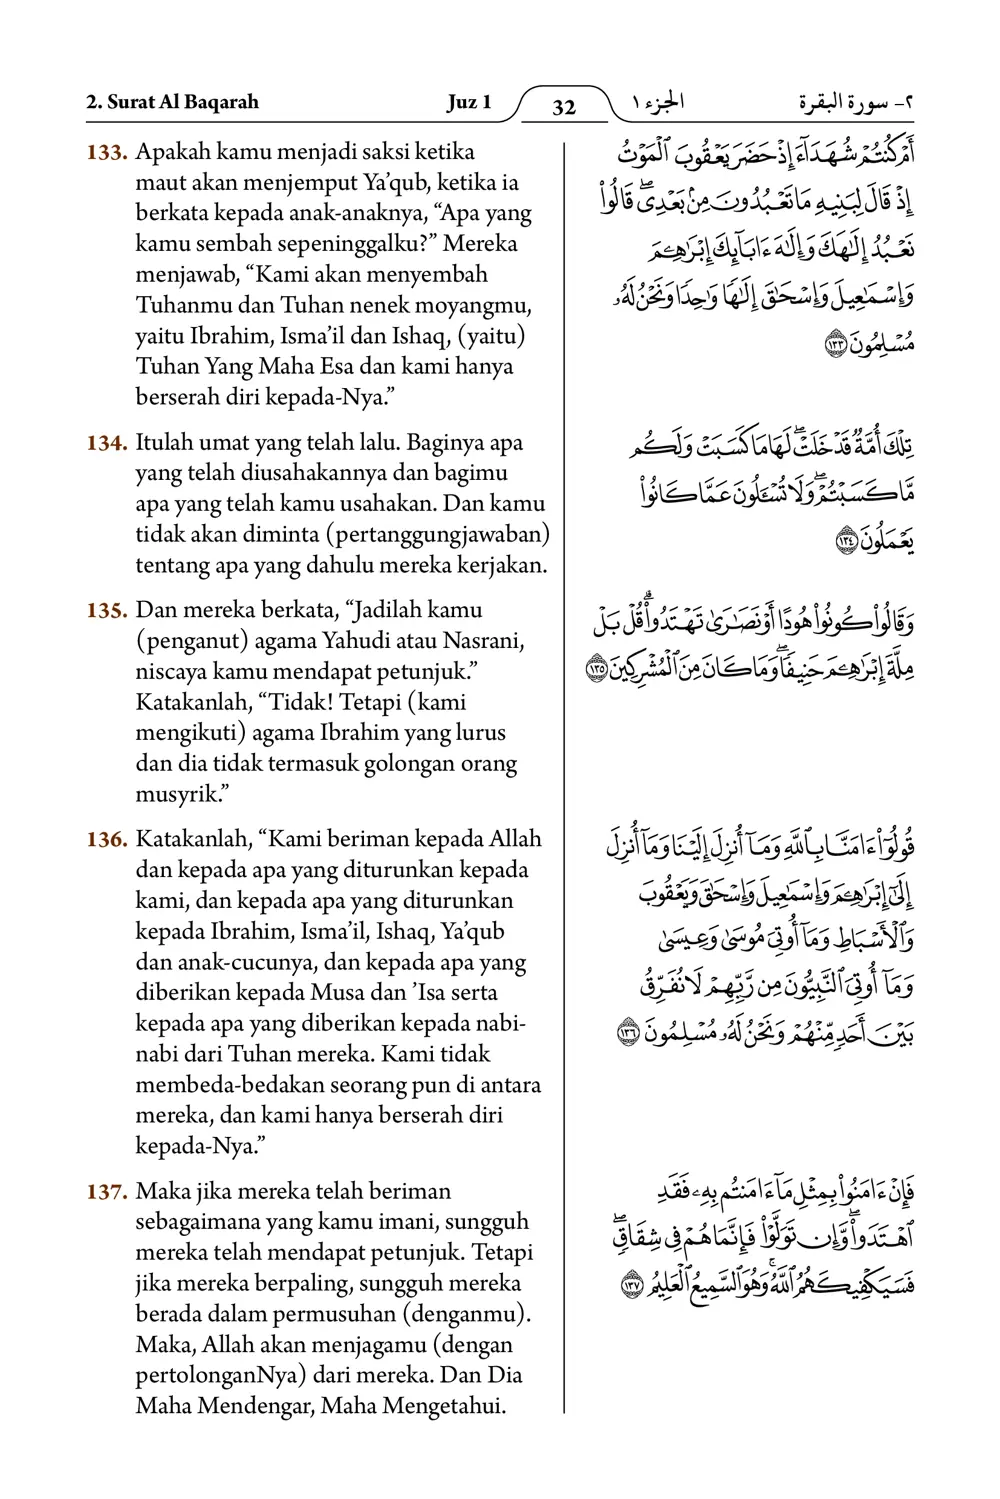 2. Surat Al Baqarah
Juz 1
32
الجزء ١
٢- سورة البقرة
133. Apakah kamu menjadi saksi ketika
maut akan menjemput Ya’qub, ketika ia
berkata kepada anak-anaknya, “Apa yang
kamu sembah sepeninggalku?” Mereka
menjawab, “Kami akan menyembah
Tuhanmu dan Tuhan nenek moyangmu,
yaitu Ibrahim, Isma’il dan Ishaq, (yaitu)
Tuhan Yang Maha Esa dan kami hanya
berserah diri kepada-Nya.”
134. Itulah umat yang telah lalu. Baginya apa
yang telah diusahakannya dan bagimu
apa yang telah kamu usahakan. Dan kamu
tidak akan diminta (pertanggungjawaban)
tentang apa yang dahulu mereka kerjakan.
135. Dan mereka berkata, “Jadilah kamu
(penganut) agama Yahudi atau Nasrani,
niscaya kamu mendapat petunjuk.”
Katakanlah, “Tidak! Tetapi (kami
mengikuti) agama Ibrahim yang lurus
dan dia tidak termasuk golongan orang
musyrik.”
136. Katakanlah, “Kami beriman kepada Allah
dan kepada apa yang diturunkan kepada
kami, dan kepada apa yang diturunkan
kepada Ibrahim, Isma’il, Ishaq, Ya’qub
dan anak-cucunya, dan kepada apa yang
diberikan kepada Musa dan ’Isa serta
kepada apa yang diberikan kepada nabi-
nabi dari Tuhan mereka. Kami tidak
membeda-bedakan seorang pun di antara
mereka, dan kami hanya berserah diri
kepada-Nya.”
137. Maka jika mereka telah beriman
sebagaimana yang kamu imani, sungguh
mereka telah mendapat petunjuk. Tetapi
jika mereka berpaling, sungguh mereka
berada dalam permusuhan (denganmu).
Maka, Allah akan menjagamu (dengan
pertolonganNya) dari mereka. Dan Dia
Maha Mendengar, Maha Mengetahui.
أَمْ كُنتُمْ شُهَدَآءَ إِذْ حَضَرَ يَعْقُوبَ ٱلْمَوْتُ
إِذْ قَالَ لِبَنِيهِ مَا تَعْبُدُونَ مِنۢ بَعْدِىۖ قَالُوا۟
نَعْبُدُ إِلَٰهَكَ وَإِلَٰهَ ءَابَآئِكَ إِبْرَٰهِۦمَ
وَإِسْمَٰعِيلَ وَإِسْحَٰقَ إِلَٰهًا وَٰحِدًا وَنَحْنُ لَهُۥ
مُسْلِمُونَ ١٣٣
تِلْكَ أُمَّةٌ قَدْ خَلَتْۖ لَهَا مَا كَسَبَتْ وَلَكُم
مَّا كَسَبْتُمْۖ وَلَا تُسْـَٔلُونَ عَمَّا كَانُوا۟
يَعْمَلُونَ ١٣٤
وَقَالُوا۟ كُونُوا۟ هُودًا أَوْ نَصَٰرَىٰ تَهْتَدُوا۟ۗ قُلْ بَلْ
مِلَّةَ إِبْرَٰهِۦمَ حَنِيفًاۖ وَمَا كَانَ مِنَ ٱلْمُشْرِكِينَ ١٣٥
قُولُوٓا۟ ءَامَنَّا بِٱللَّهِ وَمَآ أُنزِلَ إِلَيْنَا وَمَآ أُنزِلَ
إِلَىٰٓ إِبْرَٰهِۦمَ وَإِسْمَٰعِيلَ وَإِسْحَٰقَ وَيَعْقُوبَ
وَٱلْأَسْبَاطِ وَمَآ أُوتِىَ مُوسَىٰ وَعِيسَىٰ
وَمَآ أُوتِىَ ٱلنَّبِيُّونَ مِن رَّبِّهِمْ لَا نُفَرِّقُ
بَيْنَ أَحَدٍ مِّنْهُمْ وَنَحْنُ لَهُۥ مُسْلِمُونَ ١٣٦
فَإِنْ ءَامَنُوا۟ بِمِثْلِ مَآ ءَامَنتُم بِهِۦ فَقَدِ
ٱهْتَدَوا۟ۖ وَّإِن تَوَلَّوْا۟ فَإِنَّمَا هُمْ فِى شِقَاقٍۖ
فَسَيَكْفِيكَهُمُ ٱللَّهُۚ وَهُوَ ٱلسَّمِيعُ ٱلْعَلِيمُ ١٣٧